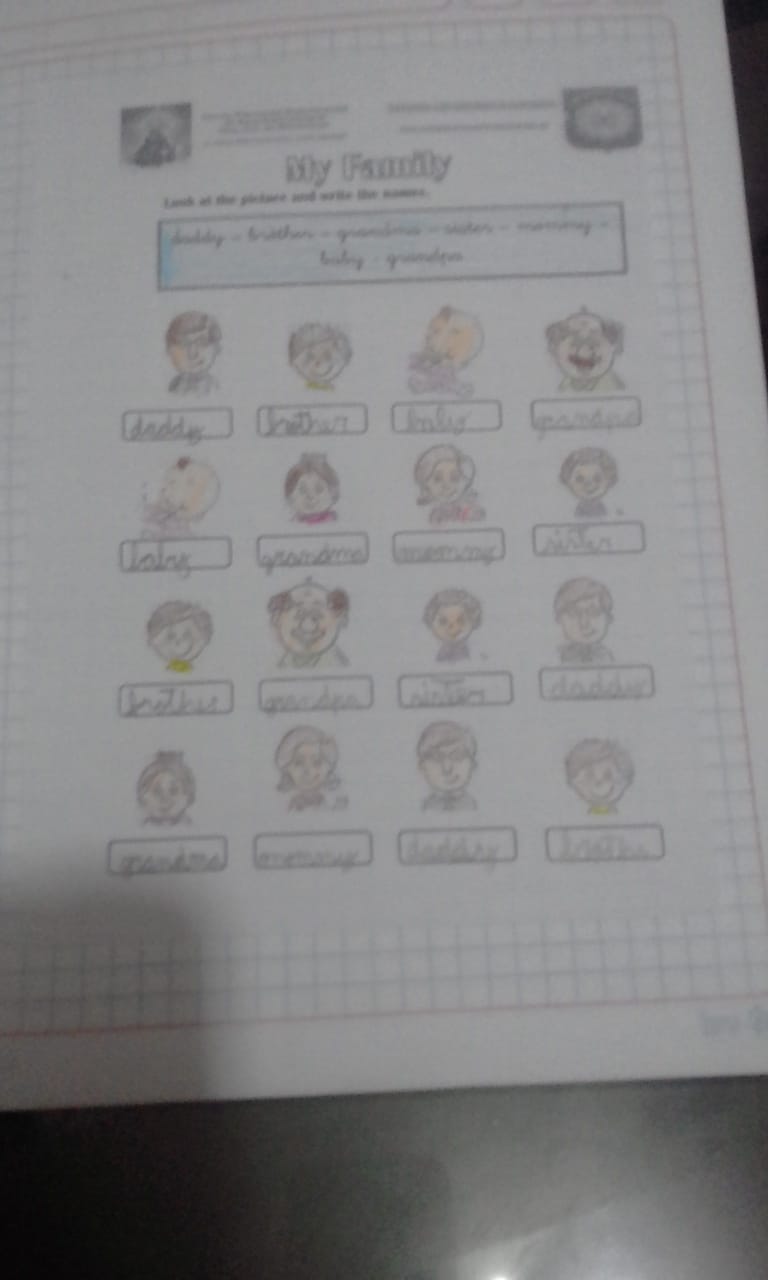 My Family
Look at the picture and write the names.
daddy - brother - grandma - sister - mommy -
baby - grandpa
daddy brother baby grandpa
baby grandma mommy sister
brother grandpa sister daddy
grandma mommy daddy